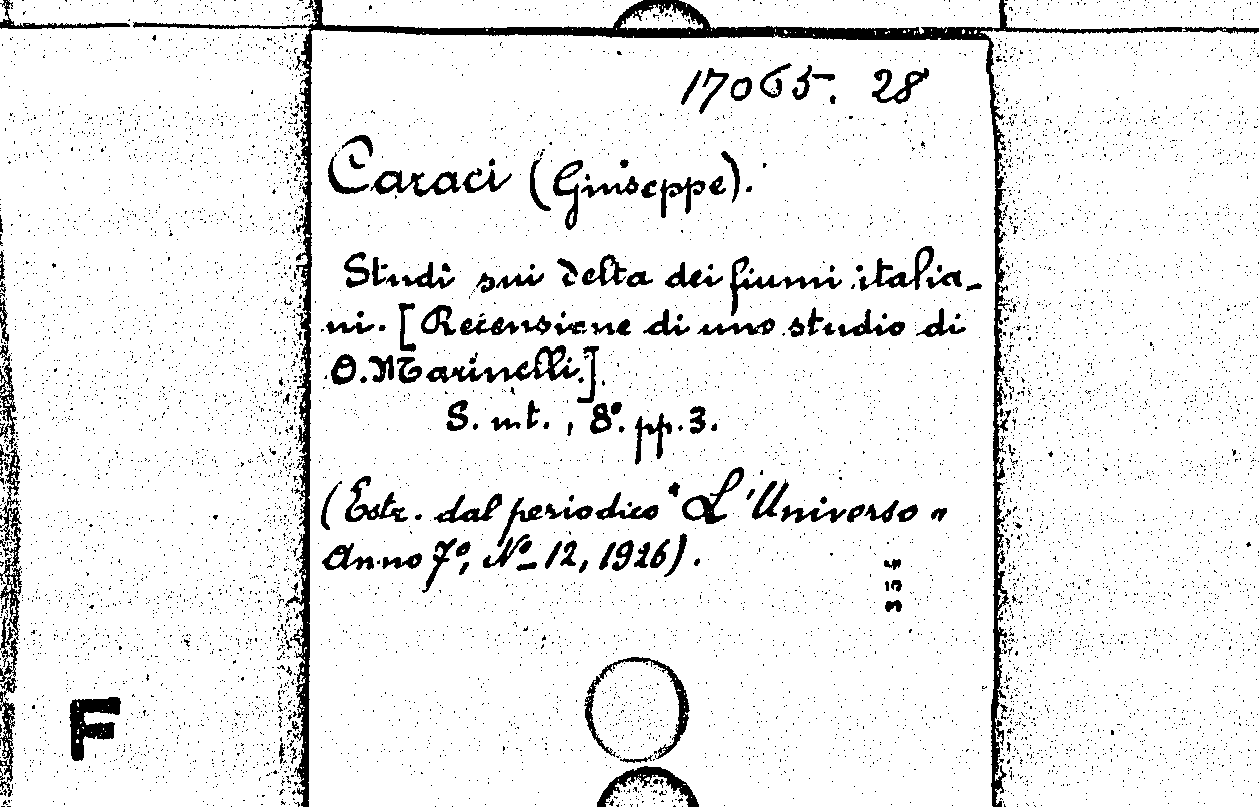 17065. 28
Caraci (Giuseppe).
Studi sui delta dei fiumi italia-
ni. [Recensione di uno studio di
O. Marinelli.]
S. n. t., 8º. pp. 3.
(Estr. dal periodico "L'Universo"
Anno 7º, Nº 12, 1926).
354
F